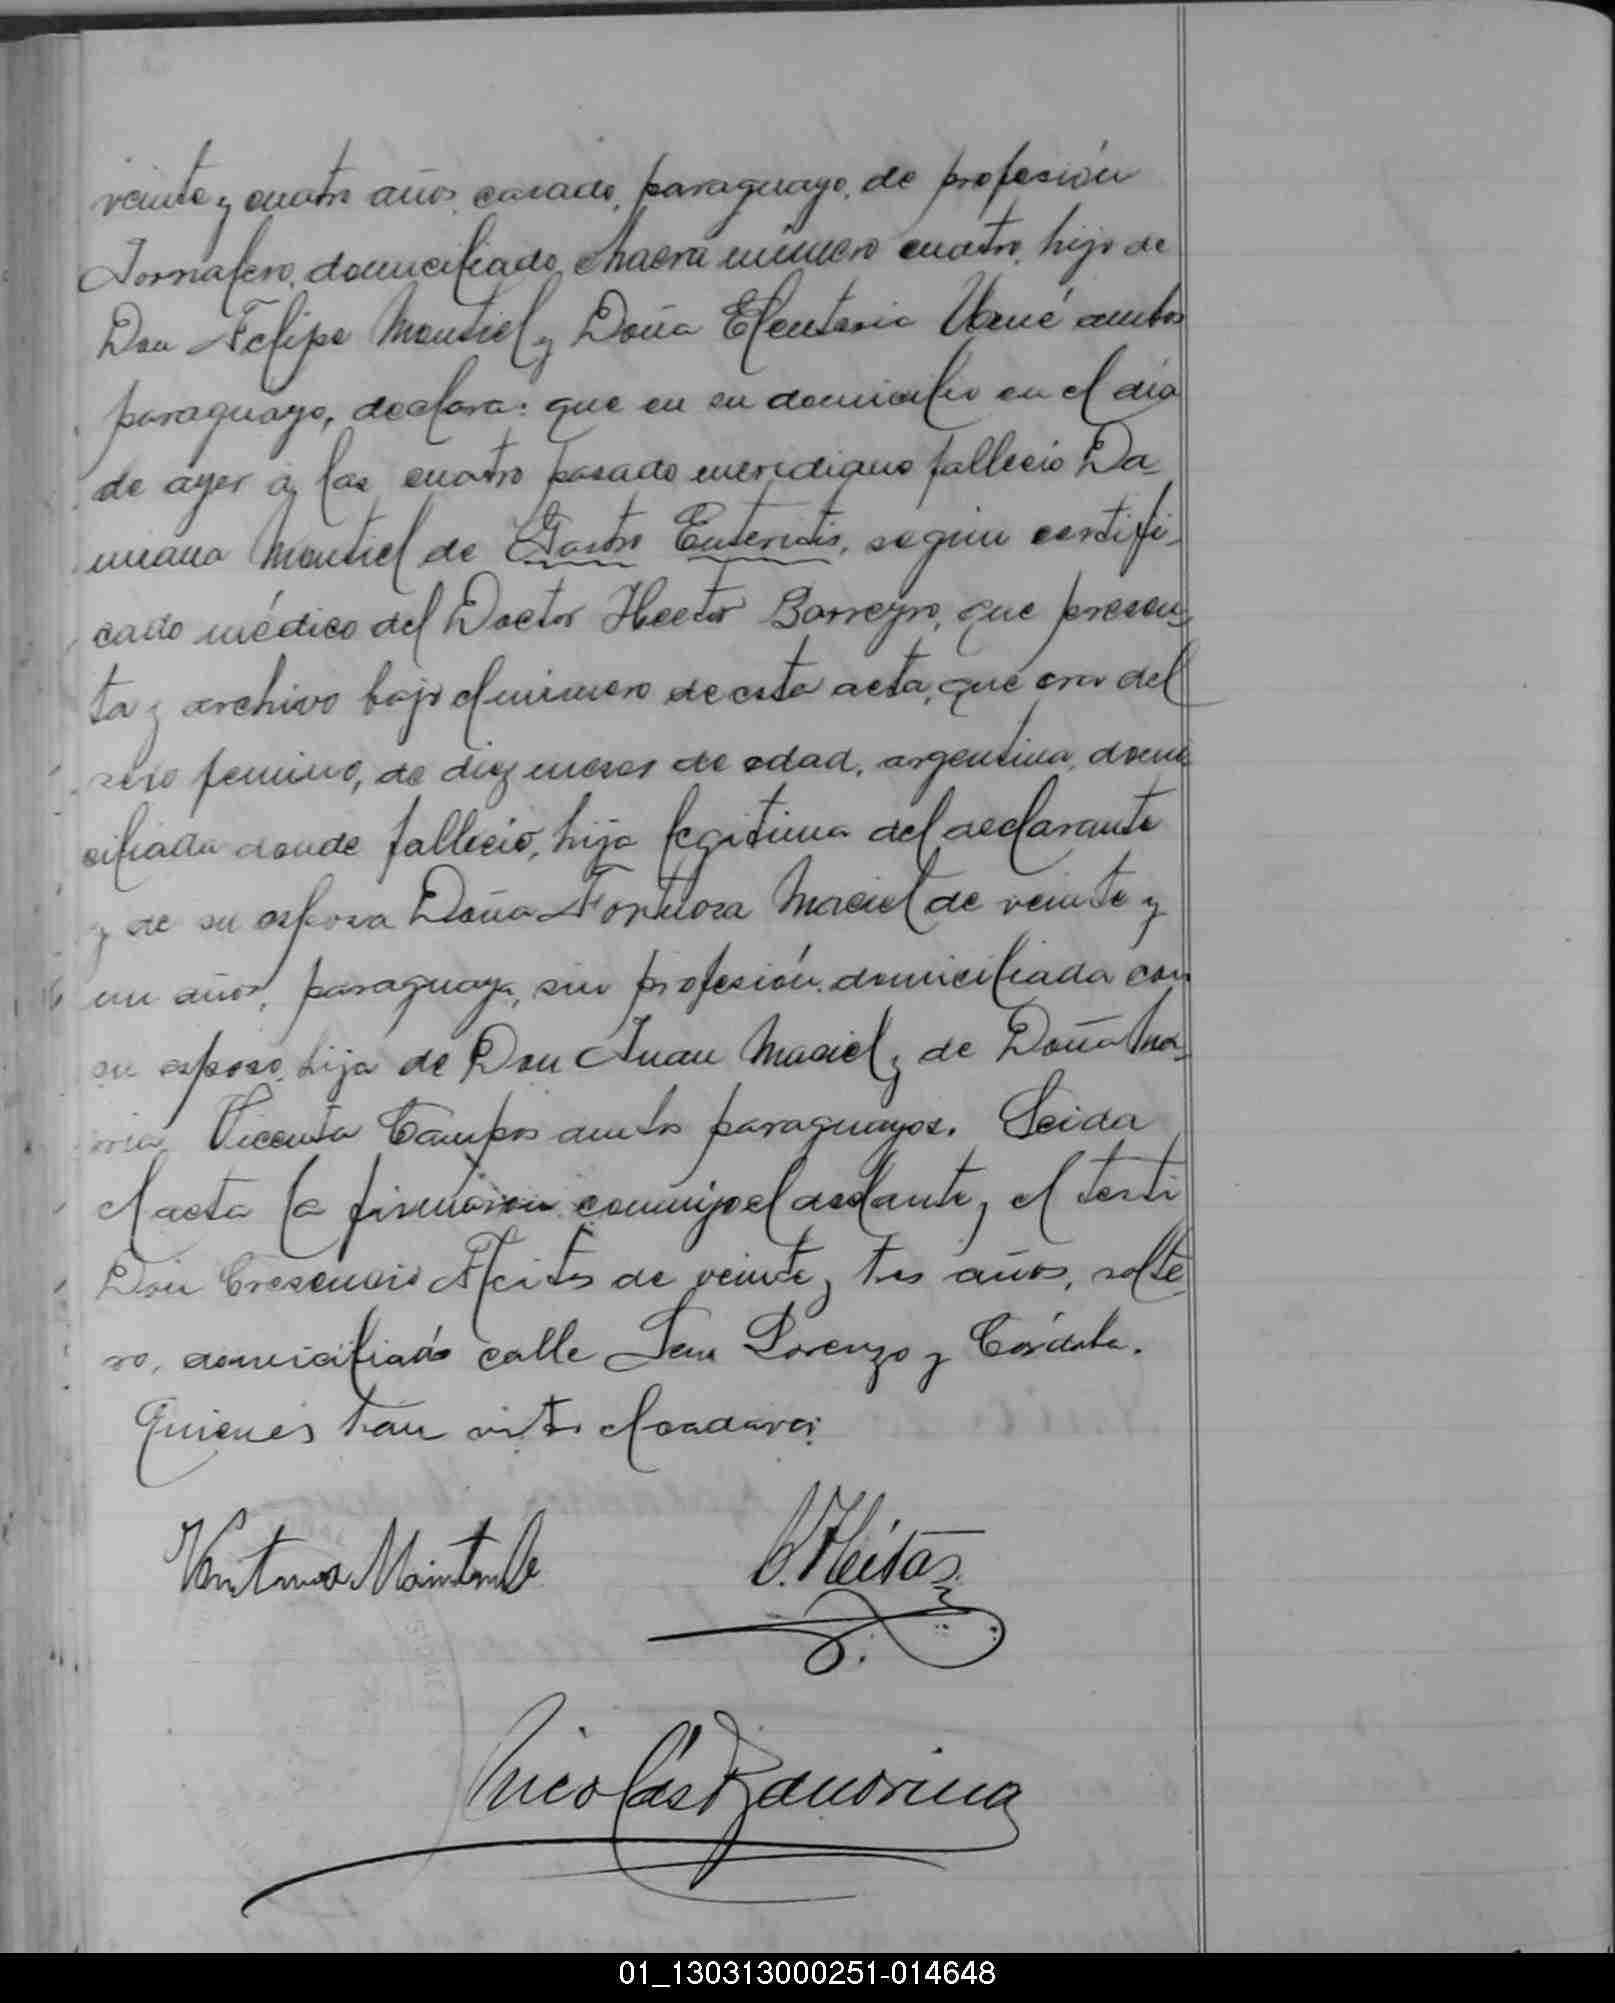 veinte y cuatro años, casado, paraguayo, de profesión
Jornalero, domiciliado Chacra número cuatro, hijo de
Don Felipe Montiel y Doña Eleuteria ambos
paraguayo, declara: que en su domicilio en el dia
de ayer á las cuatro pasado meridiano falleció Da-
miana Montiel de Gastro Enteritis, según certifi-
cado médico del Doctor Hector Barreyro, que presen-
ta y archivo bajo el número de esta acta, que era del
sexo femino, de diez meses de edad, argentina, domi
ciliada donde falleció, hija legitima del declarante
y de su esposa Doña Maciel de veinte y
un años, paraguaya, sin profesión, domiciliada con
su esposo, hija de Don Juan Maciel y de Doña Ma-
ria Vicenta Campos ambos paraguayos. Leida
el acta la firmaron conmigo el declante y el testi
Don Cresencio Fleitas de veinte y tres años, solte
ro, domiciliado calle San Lorenzo y Córdoba.
Quienes han visto el cadaver.
C. Fleitas
Nicolás
01_130313000251-014648